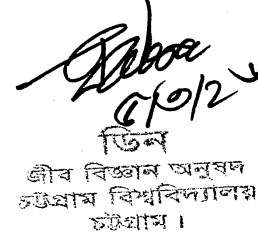 ডিন
জীব বিজ্ঞান অনুষদ
চট্টগ্রাম বিশ্ববিদ্যালয়
চট্টগ্রাম।